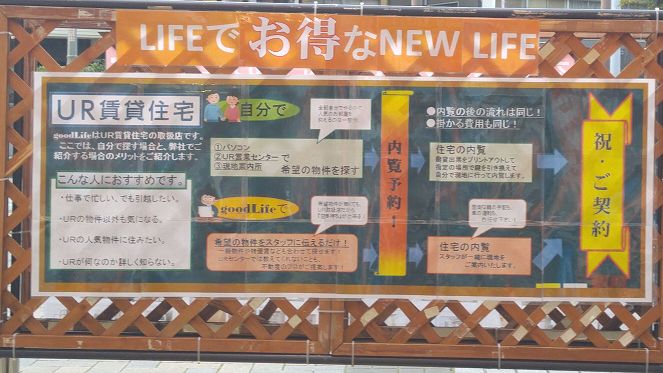 LIFEで お得なNEW LIFE
UR賃貸住宅
goodLifeはUR賃貸住宅の取扱店です。
ここでは、自分で探す場合と、弊社でご
紹介する場合のメリットとご紹介します。
こんな人におすすめです。
・仕事で忙しい、でも引越したい。
・URの物件以外も気になる。
・URの人気物件に住みたい。
・URが何なのか詳しく知らない。
自分で
①パソコン
②UR営業センターで
③現地案内所
希望の物件を探す
goodLifeで
希望の物件をスタッフに伝えるだけ！
不動産のプロがご提案します！
内覧予約！
●内覧の後の流れは同じ！
●掛かる費用も同じ！
住宅の内覧
鍵貸出票をプリントアウトして
指定の場所で鍵を引き換えて
自分で現地に行って内覧します。
住宅の内覧
スタッフが一緒に現地を
ご案内いたします。
祝・ご契約